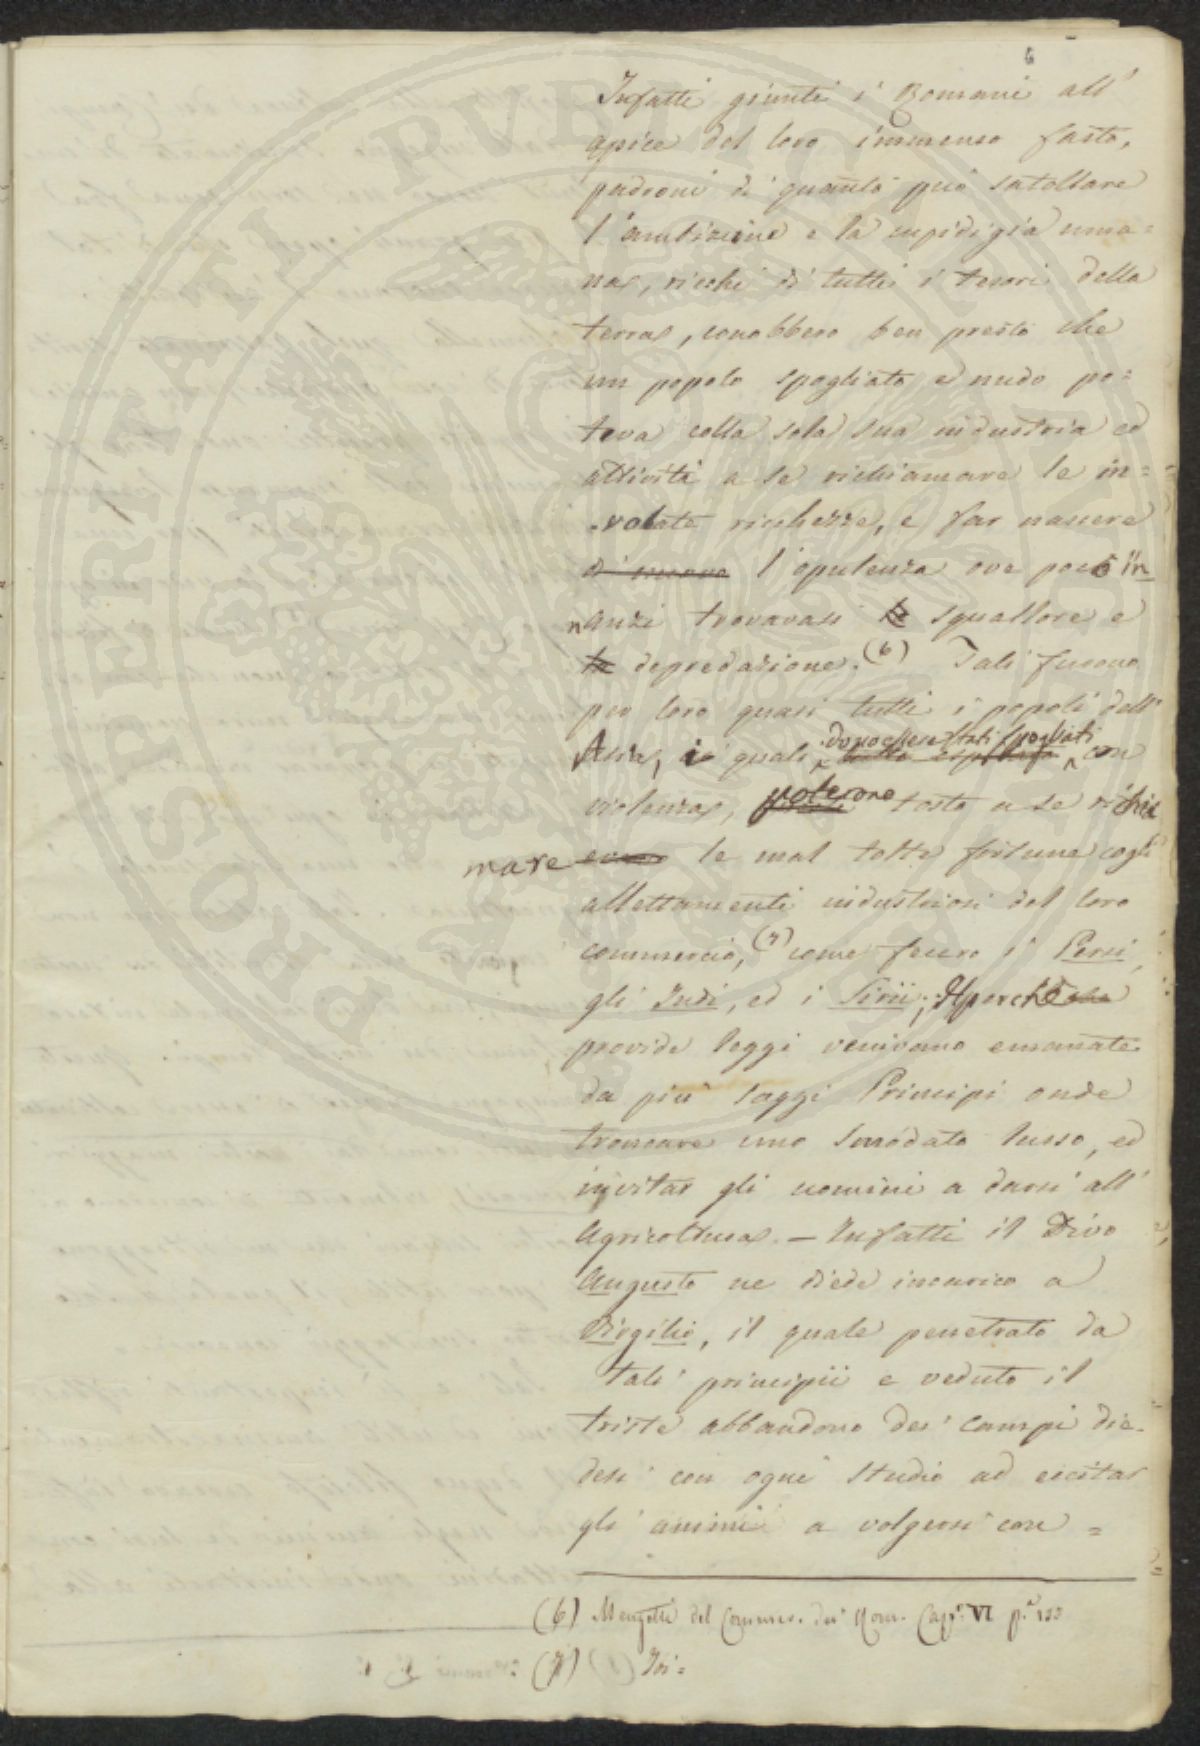 6
Infatti giunti i Romani all'
apice del loro immenso fasto,
padroni di quanto può satollare
l'ambizione e la cupidigia uma=
na, ricchi di tutti i tesori della
terra, conobbero ben presto che
un popolo spogliato e nudo po=
teva colla sola sua industria ed
attività a se richiamare le in=
volate ricchezze, e far nascere
di nuovo l'opulenza ove poco in
nanzi trovavasi lo squallore e
la depredazione. (6) Tali furono
per loro quasi tutti i popoli dell'
dopo essere stati spogliati
Asia, i quali con
violenza, poterono tosto a se richia
mare le mal tolte fortune cogli
allettamenti industriosi del loro
commercio, (7) come fecero i Persi,
gli Indi, ed i Sirii; perchè
provide leggi venivano emanate
da più saggi Principi onde
troncare uno smodato lusso, ed
invitar gli uomini a darsi all'
Agricoltura. - Infatti il Divo
Augusto ne diede incarico a
Virgilio, il quale penetrato da
tali principii e veduto il
triste abbandono dei campi die=
desi con ogni studio ad eccitar
gli animi a volgersi con=
(6) Mengotti del Commer. dei Rom. Cap. VI p. 133
(7) Ivi=
PROSPERITATI PVBLICAE